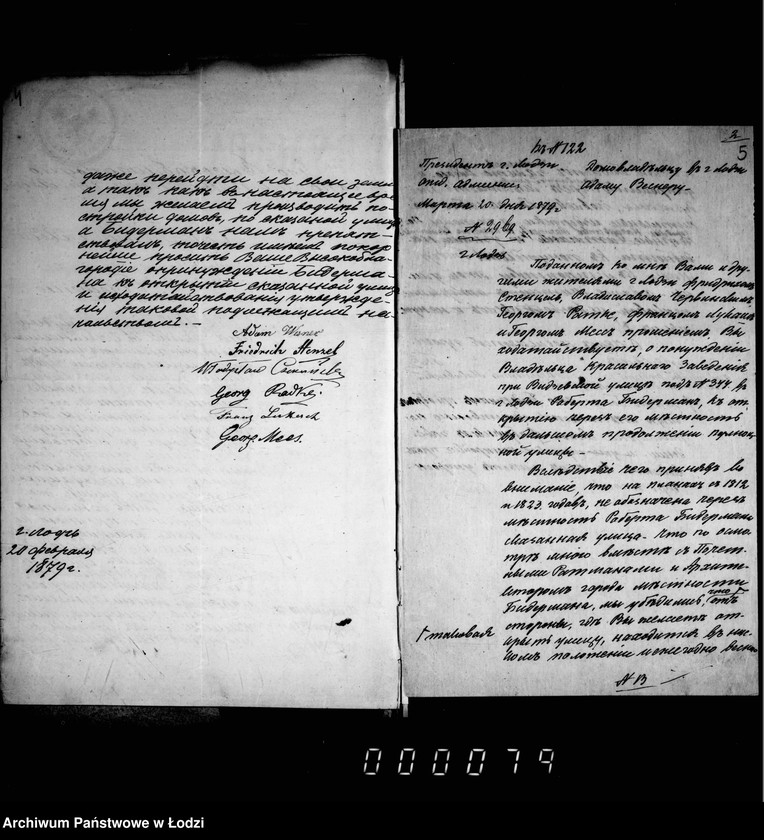 4
даже перейдти на свои земли
а такъ какъ въ настоящее вре-
мя мы желаемъ производить по-
стройки домовъ, по сказаной улицѣ
а Бидерманъ намъ препят-
ствовалъ, то честь имѣемъ покор
нѣйше просить Ваше Высокобла-
городіе о принужденіи Бидерма-
на къ открытію сказанной улицы
и исходатайствованія утвержде-
нія таковой подлежащимъ на-
чальствомъ. —
Adam Wisner
Friedrich Stenzel
Georg Radke
Franz Lukasch
Georg Mees.
г. Лодзь
20 февраля
1879 г.
2
5
къ № 122
Президентъ г. Лодзи
отд. админис.
Марта 20 дня 1879 г
№ 2969
г Лодзь
Домовладѣльцу въ г Лодзи
Адаму Веснеру.
Поданномъ ко мнѣ Вами и дру-
гими жителями г Лодзи Фридрихомъ
Стенцель, Владиславомъ Червинскимъ
Георгомъ Ратке, Францомъ Лукашъ
и Георгомъ Месъ прошеніемъ, Вы
ходатайствуете, о понужденіи
Владѣльца Красильнаго Заведенія
при Видзевской улицѣ подъ № 344 въ
г Лодзи Роберта Бидермана, къ от-
крытію черезъ его мѣстность
въ дальшомъ продолженіи
ной улицы. —
Вслѣдствіе чего принявъ во
вниманіе, что на планахъ съ 1812
и 1823 годовъ, не обозначена черезъ
мѣстность Роберта Бидермана
сказанная улица. что по осмо-
трѣ мною вмѣстѣ съ Почет-
ными Ратманами и Архите-
кторомъ города мѣстности
Бидермана, мы убѣдились, что
стороны, гдѣ Вы желаете от-
крыть улицу, находится въ низ-
комъ положеніи и ежегодно весною
таковая
№ 13
000079
Archiwum Państwowe w Łodzi